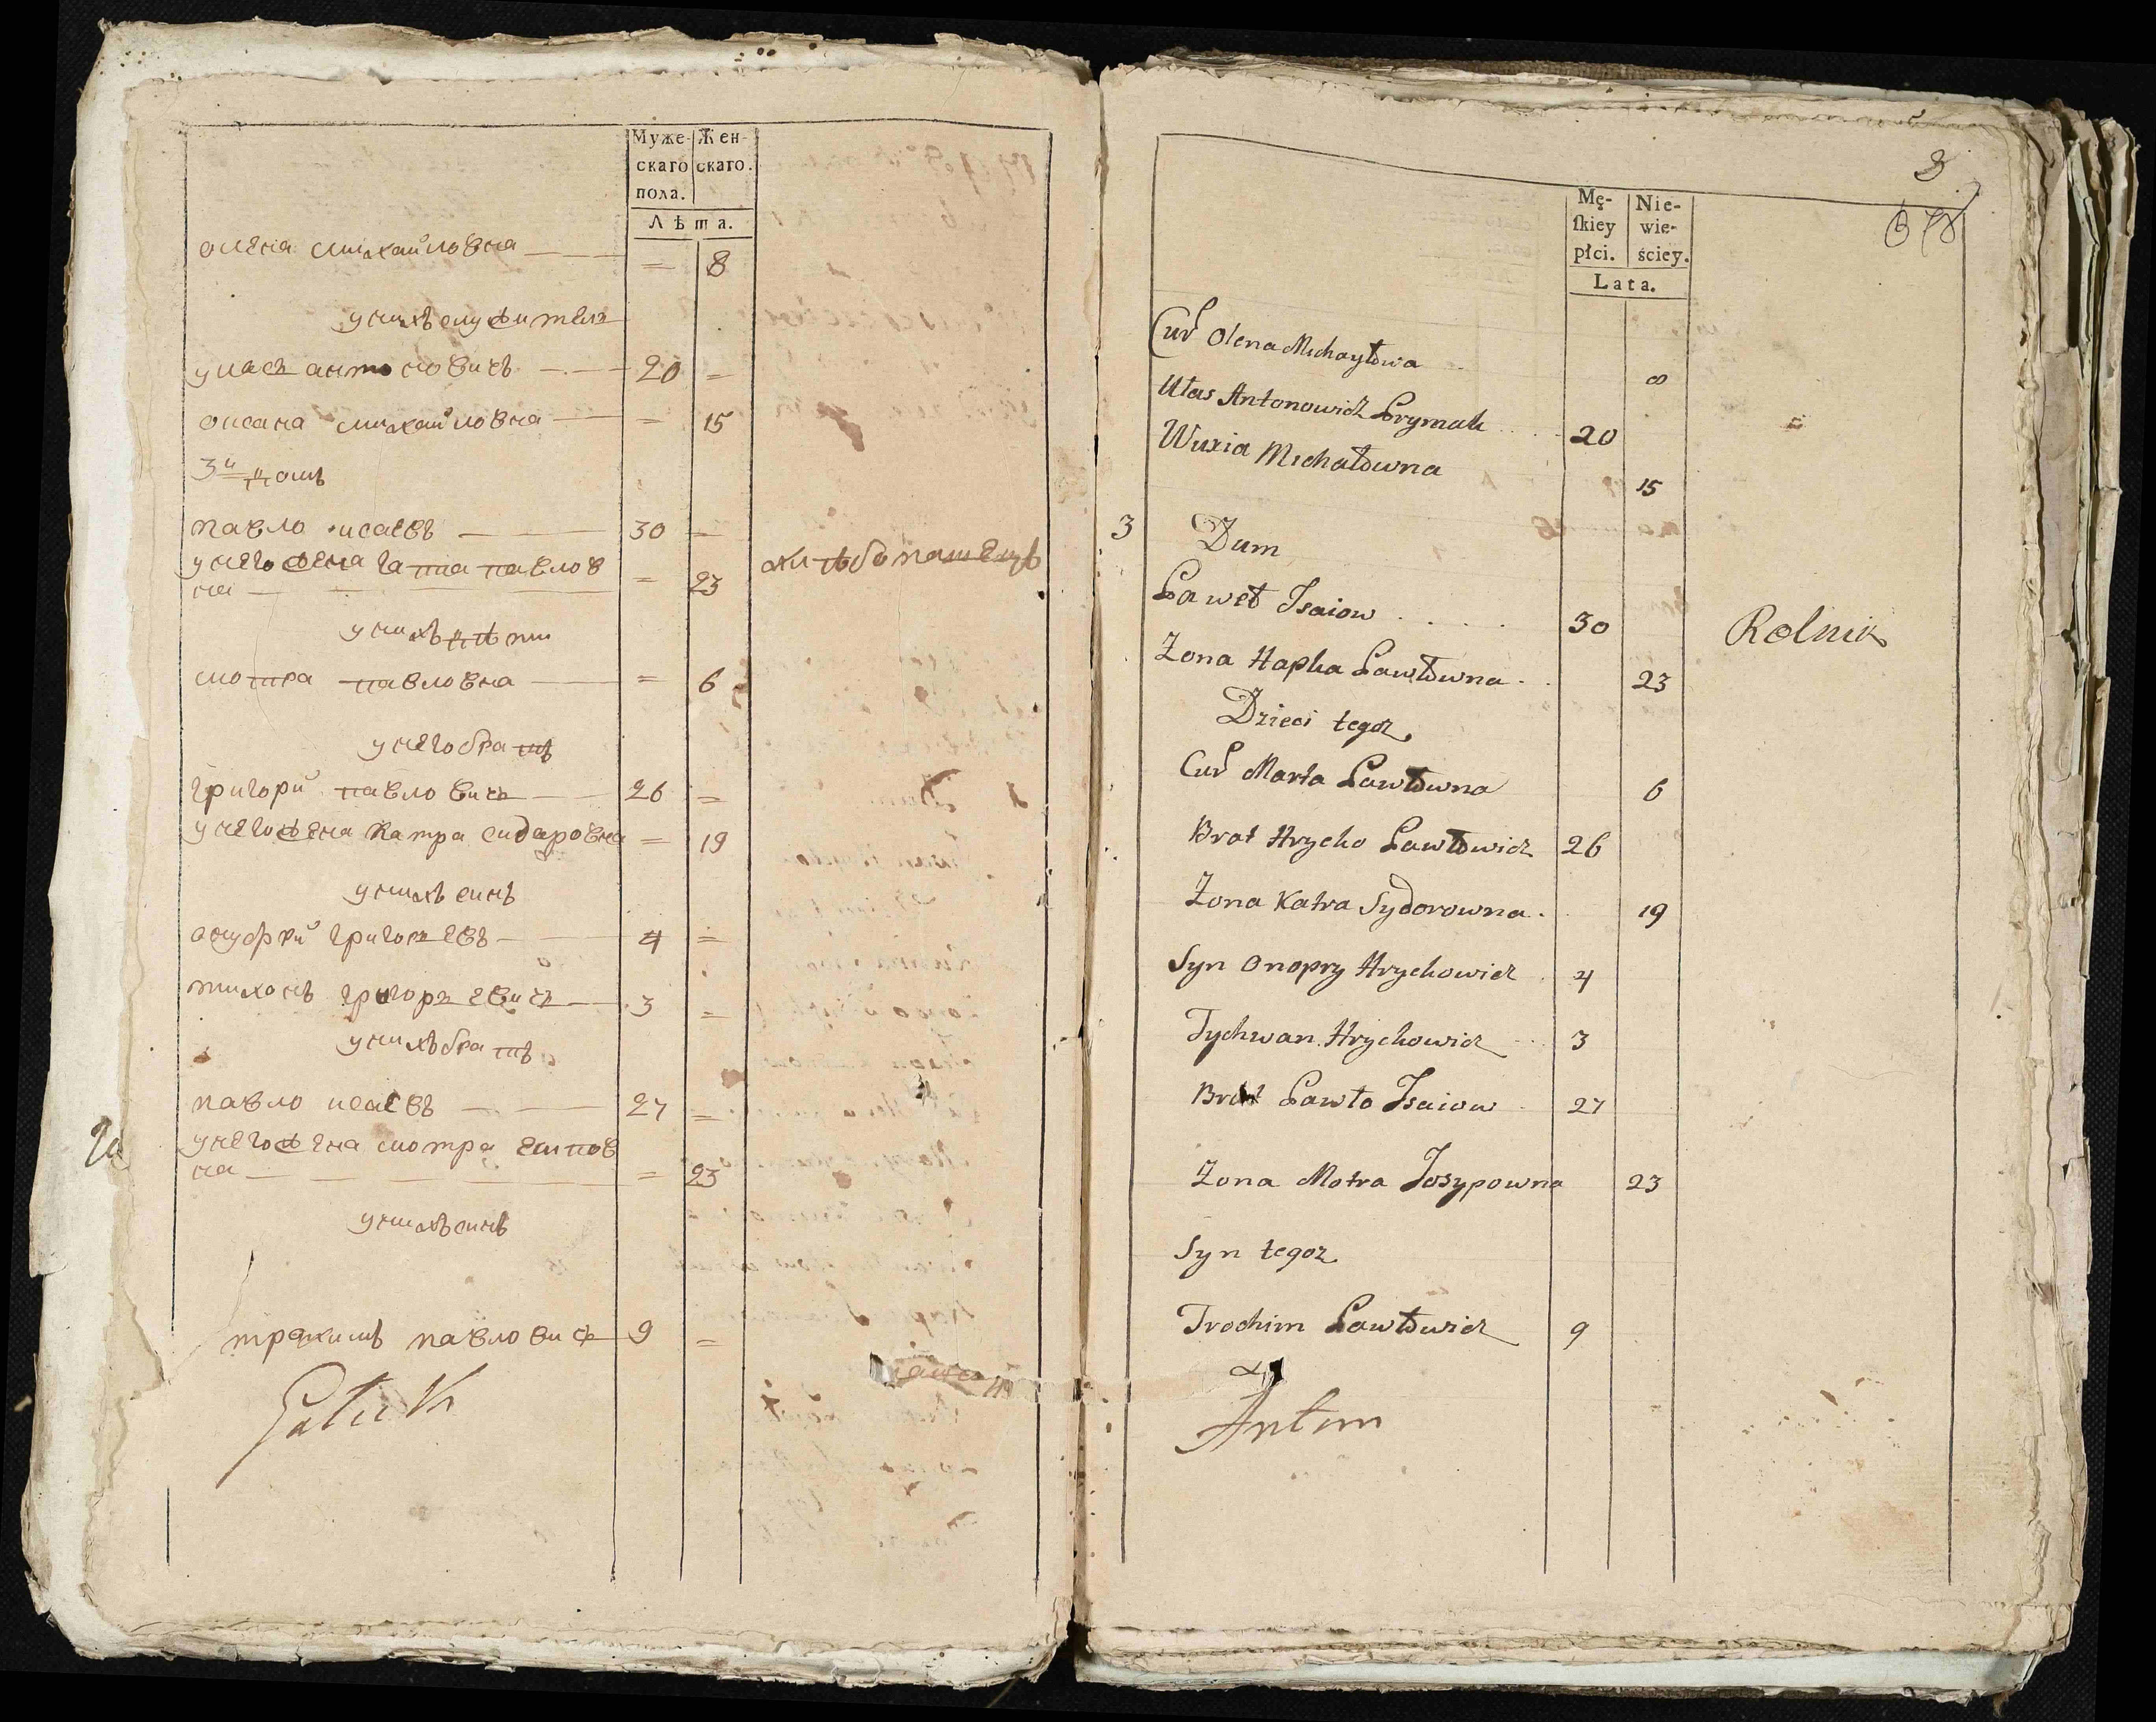 Муже- Жен-
скаго скаго.
пола.
Лѣта.
олена михайловна = 8
унихъ служители
уласъ антоновичъ 20 =
оксана михайловна = 15
3й домъ
павло исаевъ 30 = хлѣбопашецъ
унего жена гапка павлов
на = 23
унихъ дѣти
мотра павловна = 6
унего братъ
григорій павловичъ 26 =
унего жена катра сидоровна = 19
унихъ синъ
онуфрій григорʼевъ 4 =
тихонъ григорʼевичъ 3 =
унихъ братъ
павло исаевъ 27 =
унего жена мотра есипов
на = 23
унихъ синъ
трохимъ павловичъ 9 =
8
Mę- Nie-
ſkiey wie-
płci. ściey.
Lata.
Cur Olena Michayłowa 8
Ułas Antonowicz Prymak 20
Wuxia Michałowna 15
3 Dum
Paweł Isaiow 30 Rolnik
Żona Hapka Pawłowna 23
Dzieci tegoż
Cur Marta Pawłowna 6
Brat Hrycko Pawłowicz 26
Żona Katra Sydorowna 19
Syn Onopry Hryckowicz 4
Tychwan Hryckowicz 3
Brat Pawło Isaiow 27
Żona Motra Josypowna 23
Syn tegoż
Trochim Pawłowicz 9
Anton